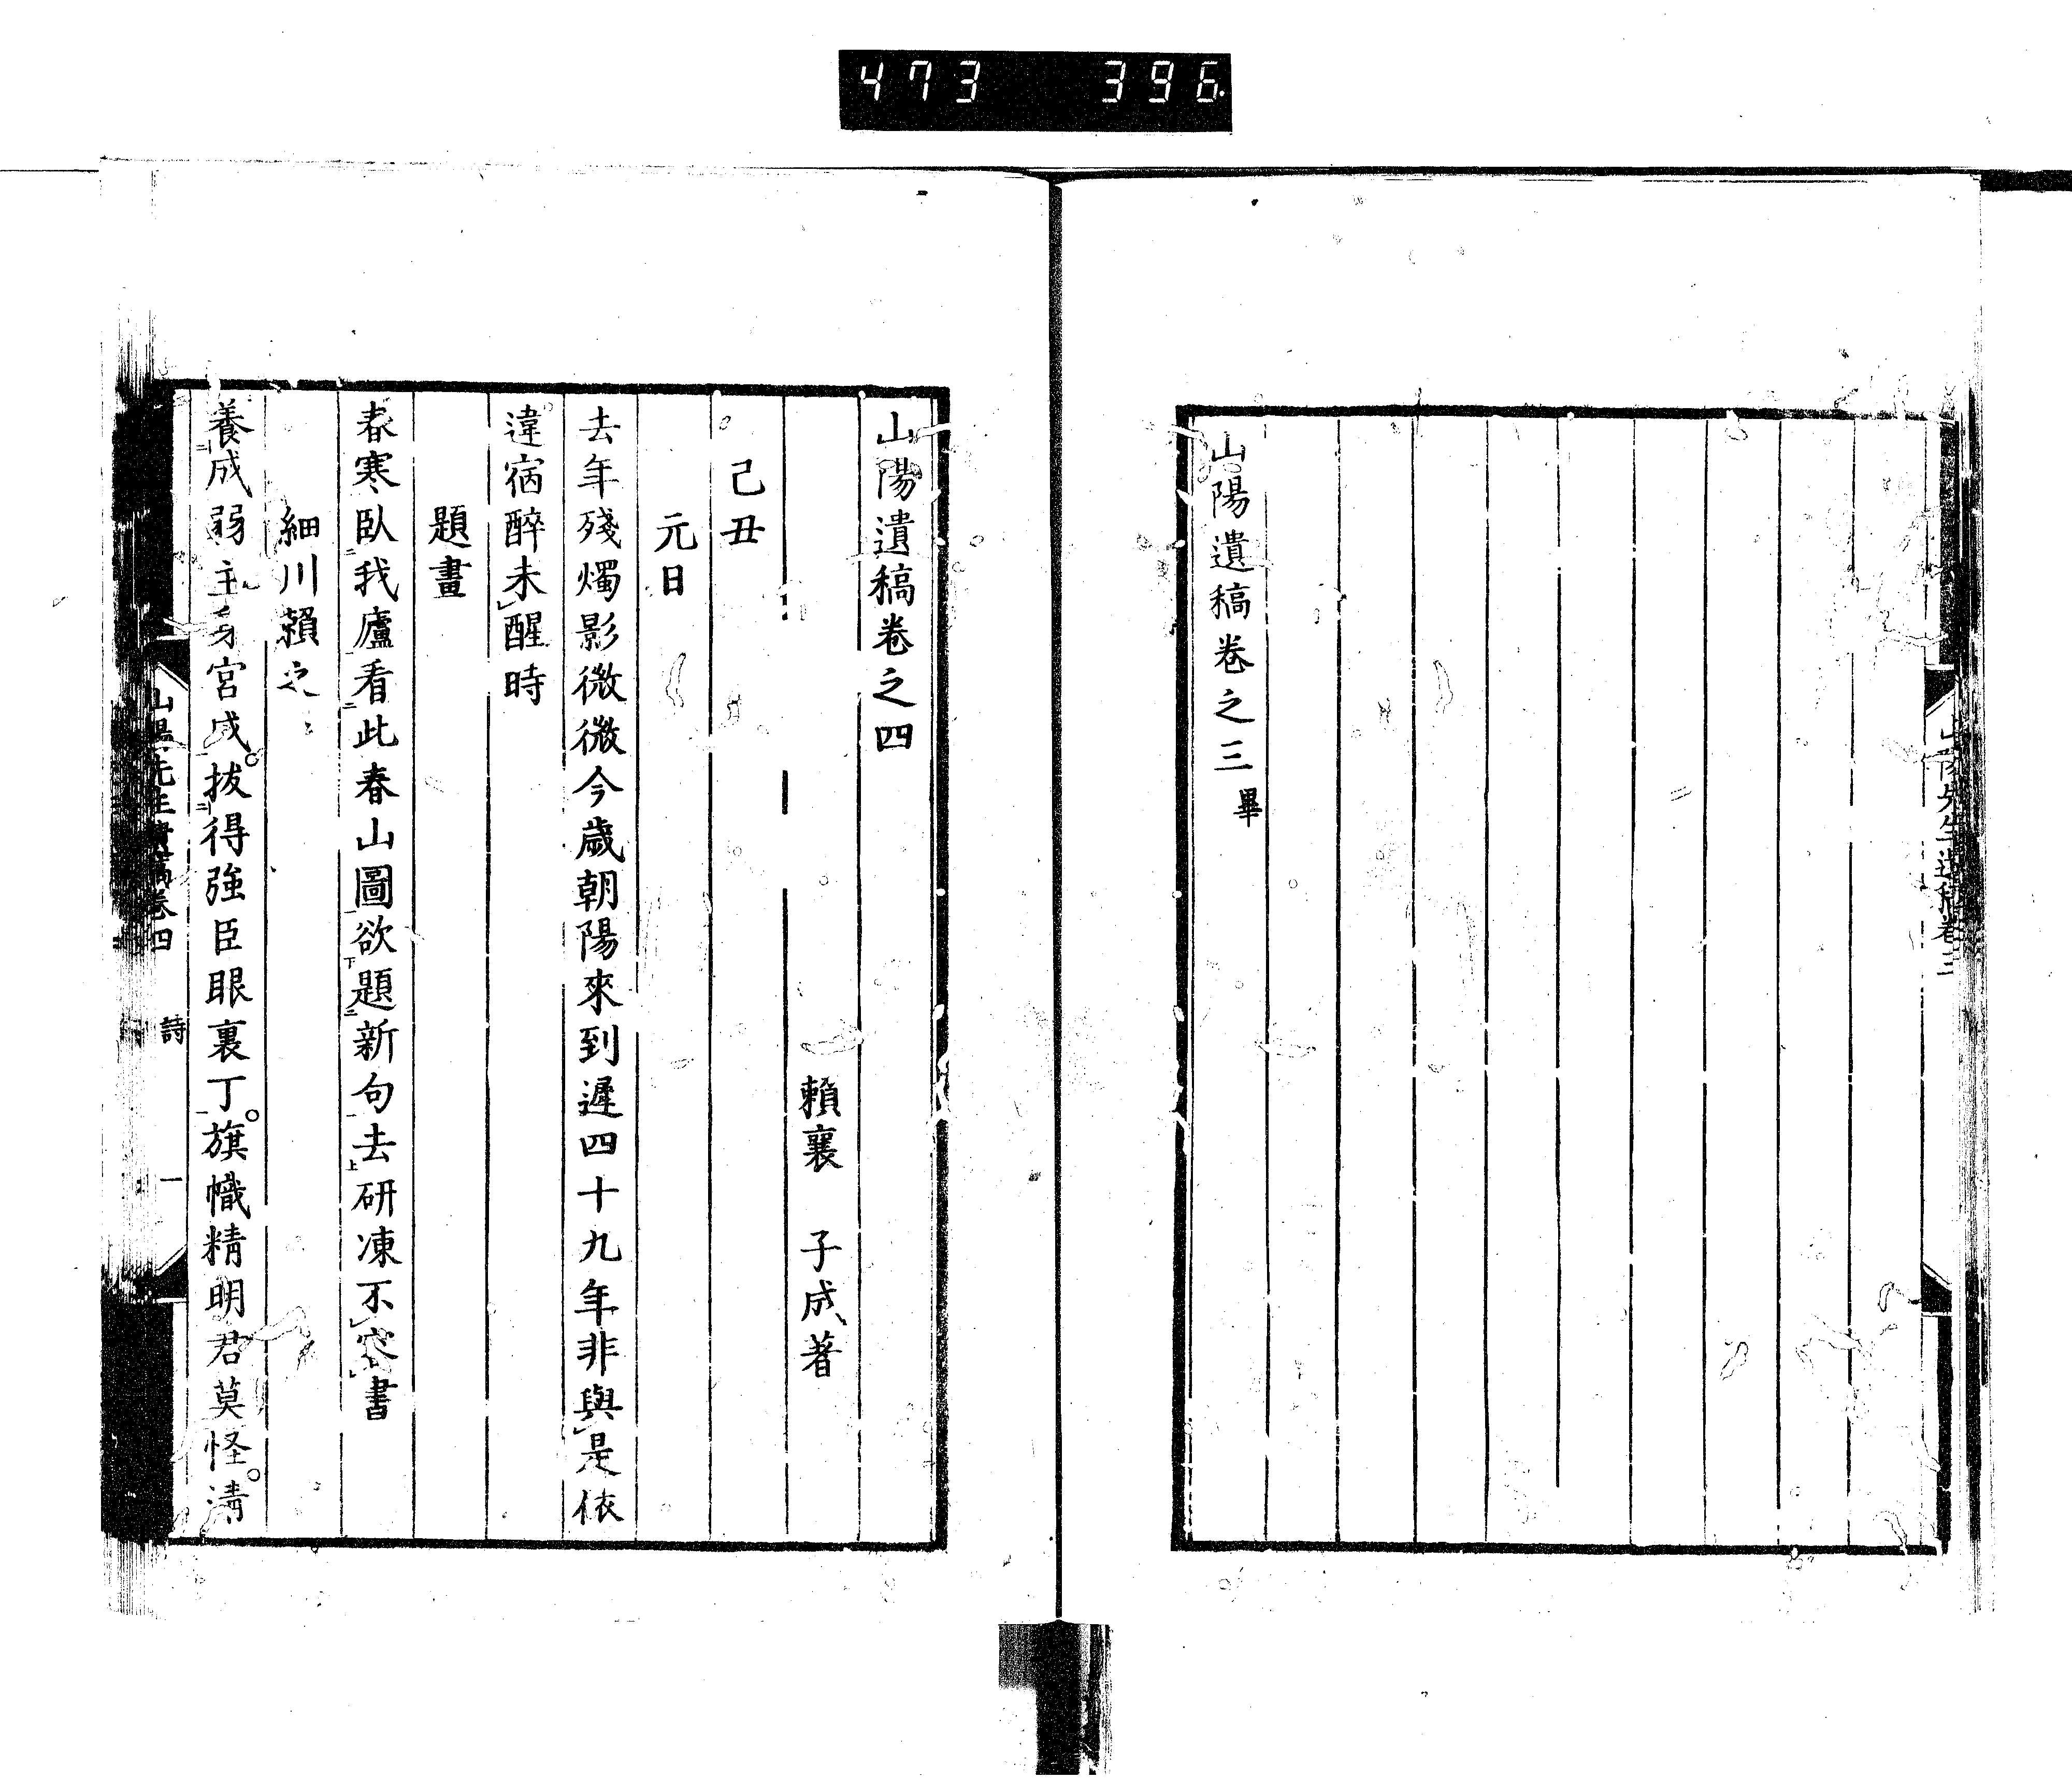 473 396
山陽遺稿卷之三畢
山陽先生遺稿卷三
山陽遺稿卷之四
賴襄 子成著
己丑
元日
去年殘燭影微微今歲朝陽來到遲四十九年非與是依
違宿醉未醒時
題畫
春寒臥我廬看此春山圖欲題新句去研凍不容書
細川賴之
養成弱主身宮成拔得強臣眼裏丁旗幟精明君莫怪淸
山陽先生遺稿卷四 詩 一